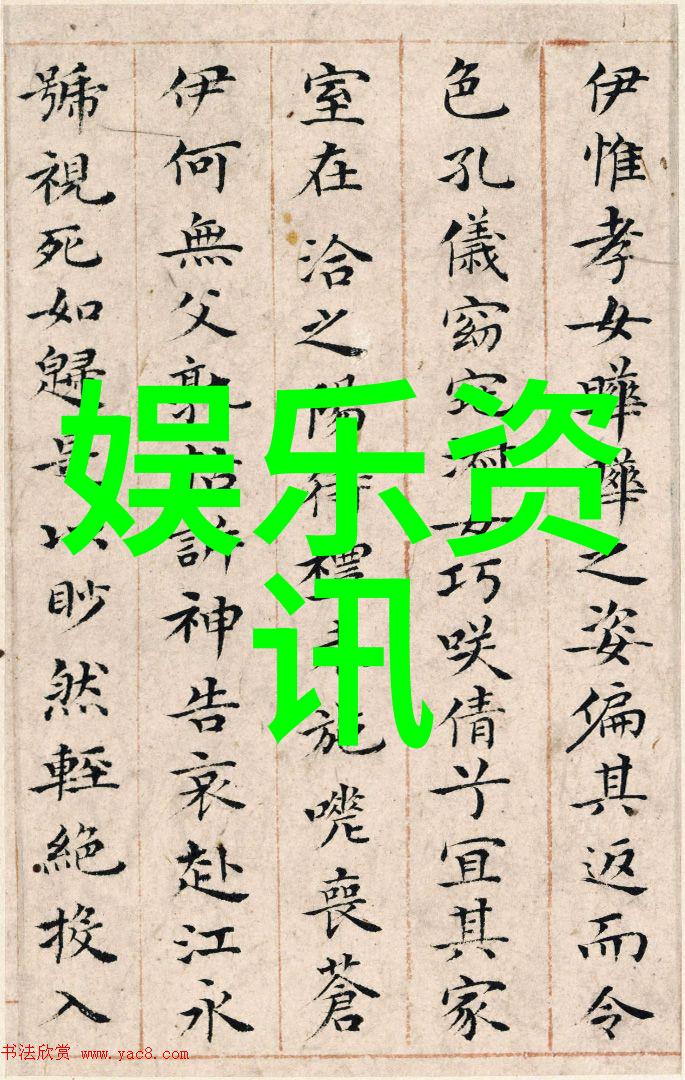 伊惟孝女曄曄之姿偏其返而令
色孔儀窈窕淑女巧咲倩兮宜其家
室在洽之陽待禮未施嗟喪蒼
伊何無父孰怙訴神告哀赴江永
號視死如歸是以眇然輕絕投入
娱乐资
讯
书法欣赏 www.yac8.com